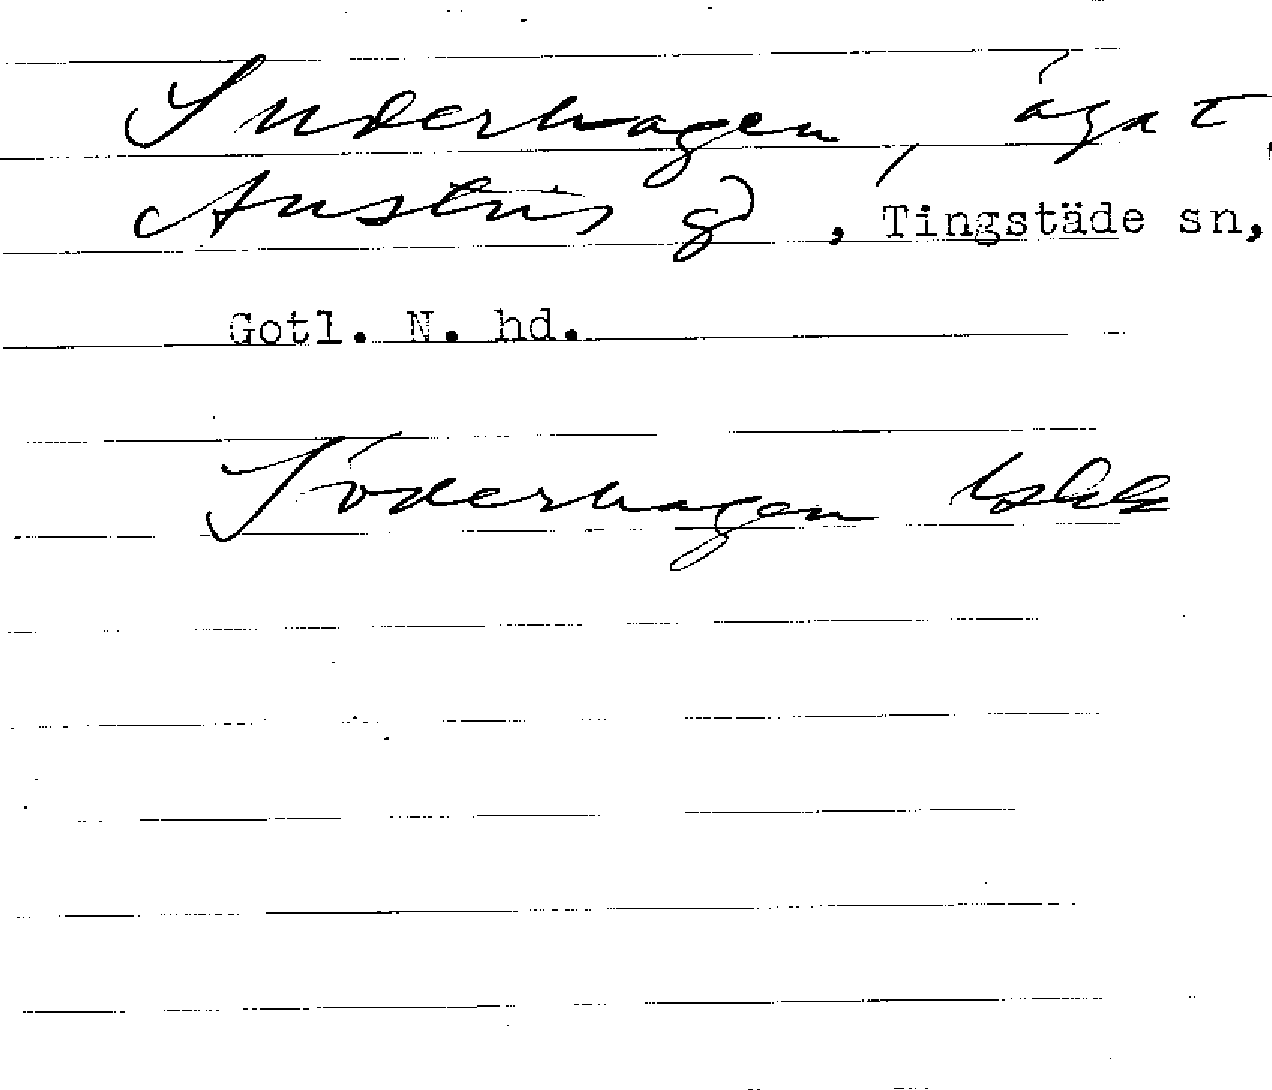 Suderhagen, ägat,
Austris gd, Tingstäde sn,
Gotl. N. hd.
Söderhagen